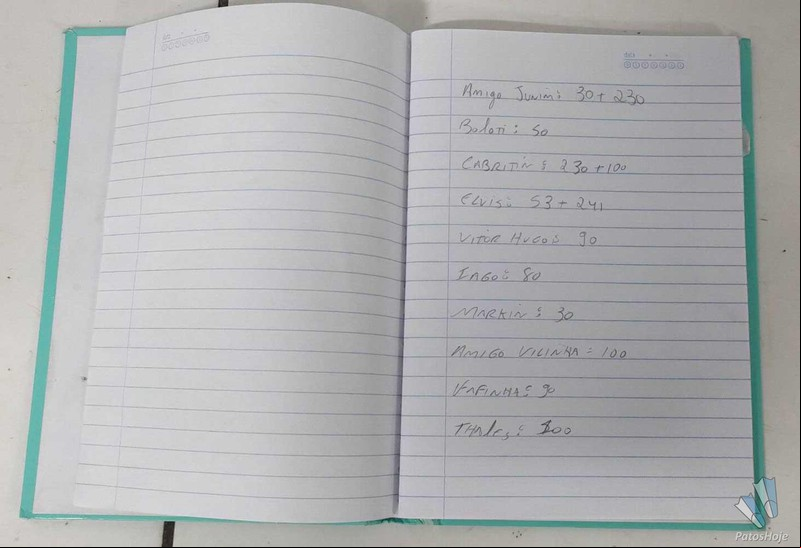 Amigo Junim: 30 + 230
Boloti: 50
CABRITIN: 230 + 100
ELVIS: 53 + 241
VITOR HUGO: 90
IAGO: 80
MARKIN: 30
AMIGO VILINHA: 100
: 90
THALES: 100
PatosHoje